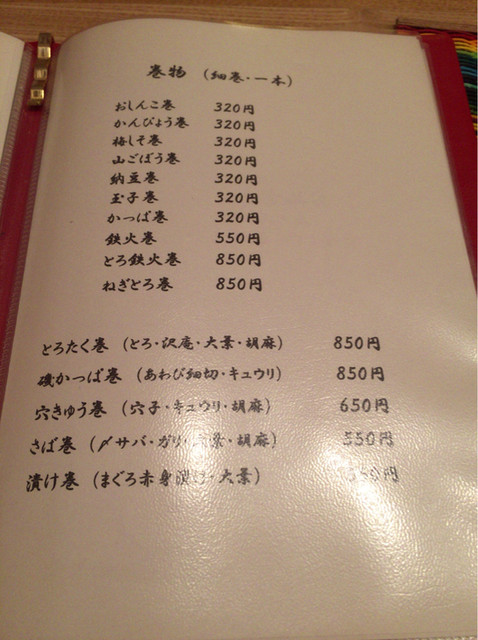 巻物 (細巻・一本)
おしんこ巻 320円
かんぴょう巻 320円
梅しそ巻 320円
山ごぼう巻 320円
納豆巻 320円
玉子巻 320円
かっぱ巻 320円
鉄火巻 550円
とろ鉄火巻 850円
ねぎとろ巻 850円
とろたく巻 (とろ・沢庵・大葉・胡麻) 850円
磯かっぱ巻 (あわび細切・キュウリ) 850円
穴きゅう巻 (穴子・キュウリ・胡麻) 650円
さば巻 (〆サバ・ガリ・大葉・胡麻) 550円
漬け巻 (まぐろ赤身漬け・大葉) 50円